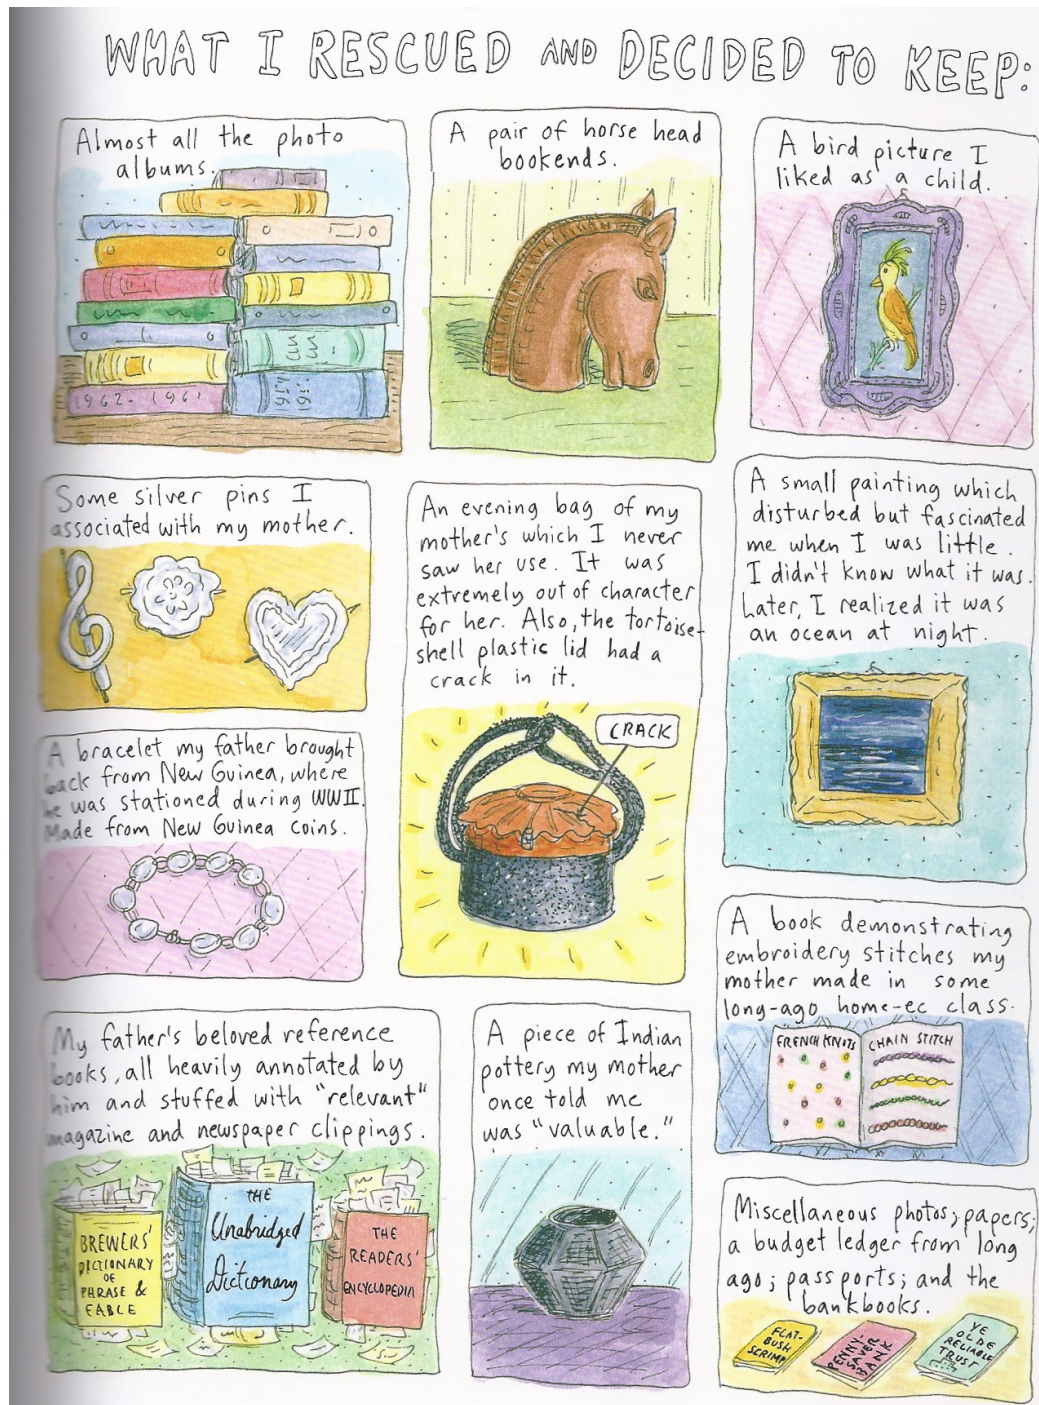 WHAT I RESCUED AND DECIDED TO KEEP:
Almost all the photo
albums.
1962-
A pair of horse head
bookends.
A bird picture I
liked as a child.
Some silver pins I
associated with my mother.
An evening bag of my
mother's which I never
saw her use. It was
extremely out of character
for her. Also, the tortoise-
shell plastic lid had a
crack in it.
CRACK
A small painting which
disturbed but fascinated
me when I was little.
I didn't know what it was.
Later, I realized it was
an ocean at night.
A bracelet my father brought
back from New Guinea, where
he was stationed during WWII.
Made from New Guinea coins.
A book demonstrating
embroidery stitches my
mother made in some
long-ago home-ec class.
FRENCH KNOTS
CHAIN STITCH
My father's beloved reference
books, all heavily annotated by
him and stuffed with "relevant"
magazine and newspaper clippings.
BREWERS'
DICTIONARY
OF
PHRASE &
FABLE
THE
Unabridged
Dictionary
THE
READERS'
ENCYCLOPEDIA
A piece of Indian
pottery my mother
once told me
was "valuable."
Miscellaneous photos; papers;
a budget ledger from long
ago; passports; and the
bankbooks.
FLAT-
BUSH
SCRIMP
PENNY-
SAVER
BANK
YE
OLDE
RELIABLE
TRUST